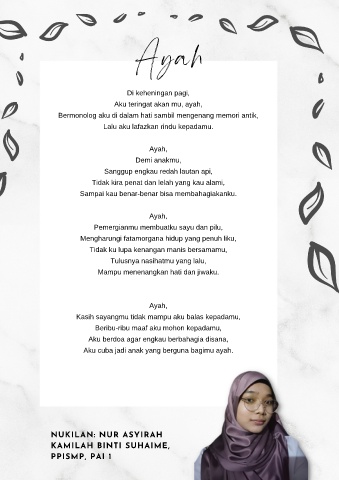 Ayah
Di keheningan pagi,
Aku teringat akan mu, ayah,
Bermonolog aku di dalam hati sambil mengenang memori antik,
Lalu aku lafazkan rindu kepadamu.
Ayah,
Demi anakmu,
Sanggup engkau redah lautan api,
Tidak kira penat dan lelah yang kau alami,
Sampai kau benar-benar bisa membahagiakanku.
Ayah,
Pemergianmu membuatku sayu dan pilu,
Mengharungi fatamorgana hidup yang penuh liku,
Tidak ku lupa kenangan manis bersamamu,
Tulusnya nasihatmu yang lalu,
Mampu menenangkan hati dan jiwaku.
Ayah,
Kasih sayangmu tidak mampu aku balas kepadamu,
Beribu-ribu maaf aku mohon kepadamu,
Aku berdoa agar engkau berbahagia disana,
Aku cuba jadi anak yang berguna bagimu ayah.
NUKILAN: NUR ASYIRAH
KAMILAH BINTI SUHAIME,
PPISMP, PAI 1